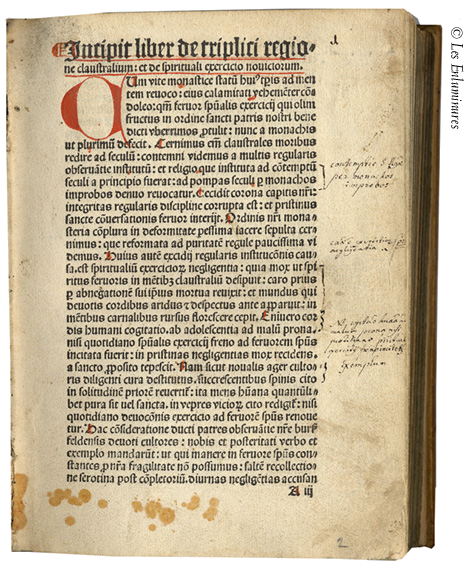 Incipit liber de triplici regio⸗
ne claustralium: et de spirituali exercicio nouiciorum.
QUm vite monastice statũ huiꝰ tp̃is ad men
tem reuoco: eius calamitati vehemẽter cõ
doleo: qm̃ feruor sp̃ualis exercicij qui olim
fructus in ordine sancti patris nostri bene
dicti vberrimos ꝓtulit: nunc a monachis
ut plurimũ defecit. Cernimus em̃ claustrales moribus
redire ad seculũ: contemni videmus a multis regularis
obseruãtie institutũ: et religio que instituta ad cõtemptũ
seculi a principio fuerat: ad pompas seculi ꝑ monachos
improbos denuo reuocatur. Cecidit corona capitis nr̃i:
integritas regularis discipline corrupta est: et pristinus
sancte cõuersationis feruor interijt. Ordinis nr̃i mona⸗
steria cõplura in deformitate pessima iacere sepulta cer⸗
nimus: que reformata ad puritatẽ regule paucissima vi
demus. Huius autẽ excidij regularis institucõnis cau⸗
sa. est spiritualiũ exercicioꝝ negligentia: quia mox ut spi
ritus feruoris in mẽtibꝰ claustraliũ desijt: caro priꝰ
ꝑ abnegatiõnẽ sui ip̃ius mortua reuixit: et mundus qui
deuotis cordibus aridus et despectus ante apparuit: in
mẽtibus carnalibus rursus florescere cepit. Enimuero cor
dis humani cogitatio. ab adolescentia ad malũ prona.
nisi quotidiano sp̃ualis exercicij freno ad feruorem sp̃us
incitata fuerit: in pristinas negligentias mox recidens.
a sancto ꝓposito tepescit. Nam sicut noualis ager cultor
ris diligenti cura destitutus. succrescentibus spinis cito
in solitudinẽ priorẽ reuertit̃: ita mens hũana quantũli⸗
bet pura sit uel sancta. in vepres vicioꝝ cito redigit̃: nisi
quotidiano deuocõnis exercicio ad feruorẽ sp̃us renoue
tur. Hac cõsideratione ducti patres obseruãtie nr̃e burß
feldensis deuoti cultores: nobis et posteritati verbo et
exemplo mandarũt: ut qui manere in feruore sp̃us con⸗
stantes ꝓ nr̃a fragilitate nõ possumus: saltẽ recollectio⸗
ne serotina post cõpletoriũ. diurnas negligẽtias accusan
A iij
per monachos
improbos
negligentia
Exemplum
2
© Les Enluminures